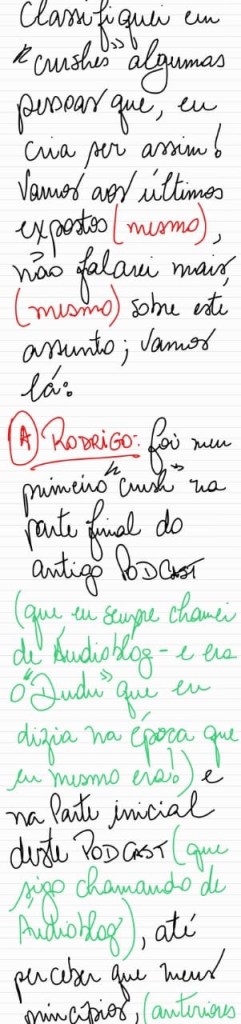 Classifiquei em
"crushes" algumas
pessoas que, eu
cria ser assim!
Vamos aos últimos
expostos (mesmo),
não falarei mais,
(mesmo) sobre este
assunto; vamos
lá:
(A) RODRIGO: foi meu
primeiro "crush" na
parte final do
antigo PODCAST
(que eu sempre chamei
de Áudioblog - e era
o "Dudu" que eu
dizia na época que
eu mesmo era!) e
na Parte inicial
deste PODCAST (que
sigo chamando de
"Áudioblog"), até
perceber que meus
princípios, (anteriores